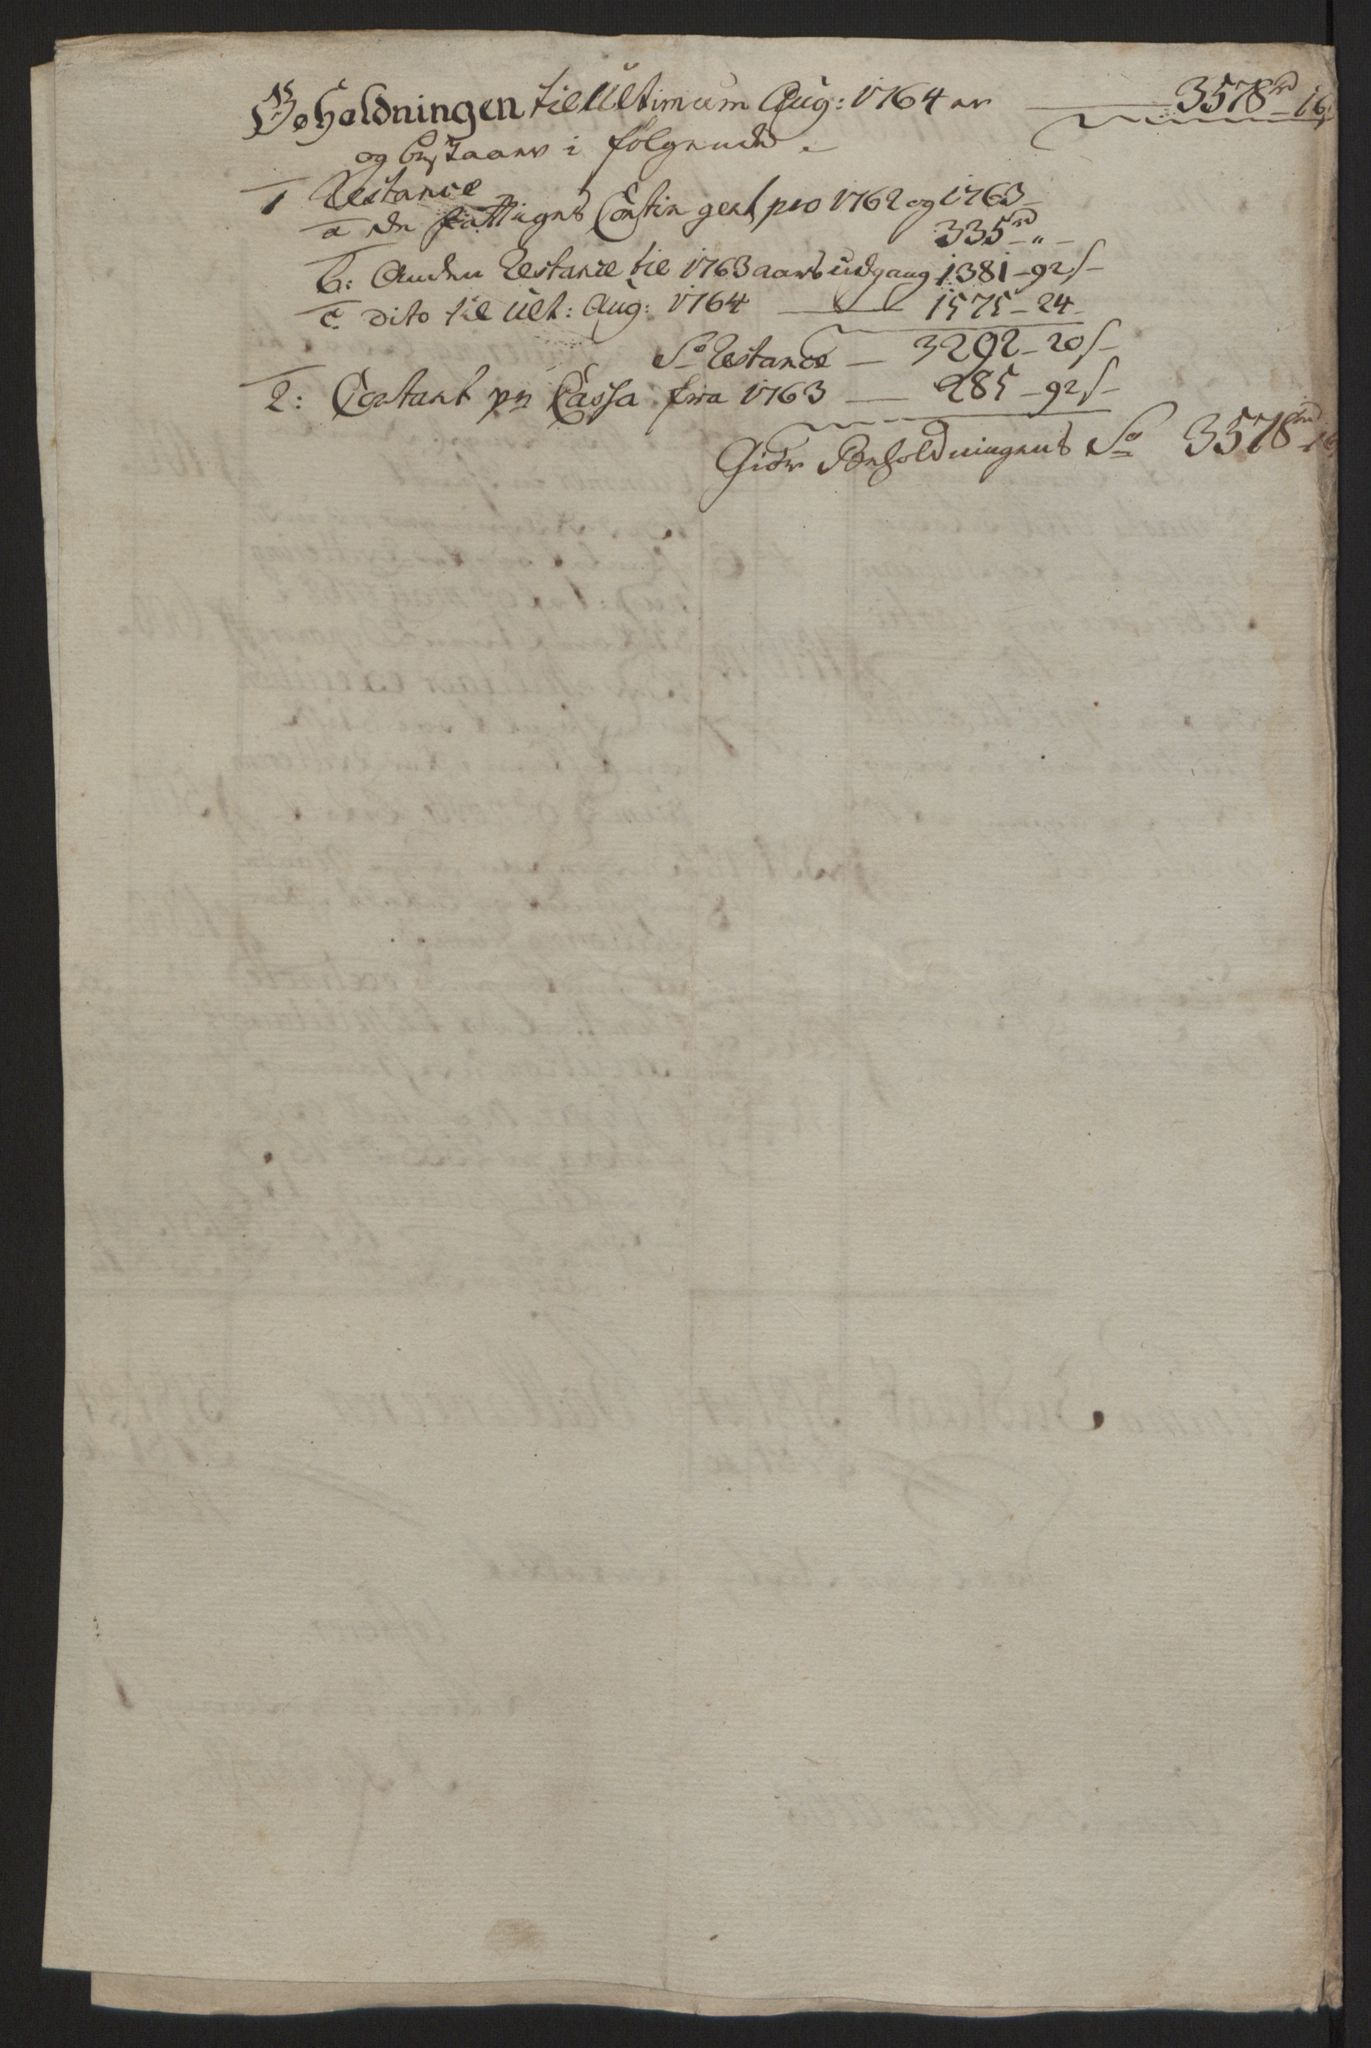 Beholdningen til Ultimum Aug: 1764 er — 3578rd – 16
og bestaaer i følgende.
1 Restance
a de fattiges Contingent pro 1762 og 1763 –
335rd – „ –
b: Anden Restance til 1763 aars udgang 1381 – 92 s –
c dito til Ult: Aug: 1764 — 1575 – 24 –
Sa Restance — 3292 – 20 s –
2: Contant pr Cassa fra 1763 — 285 – 92 s –
Giør Beholdningens Sa 3578rd – 16